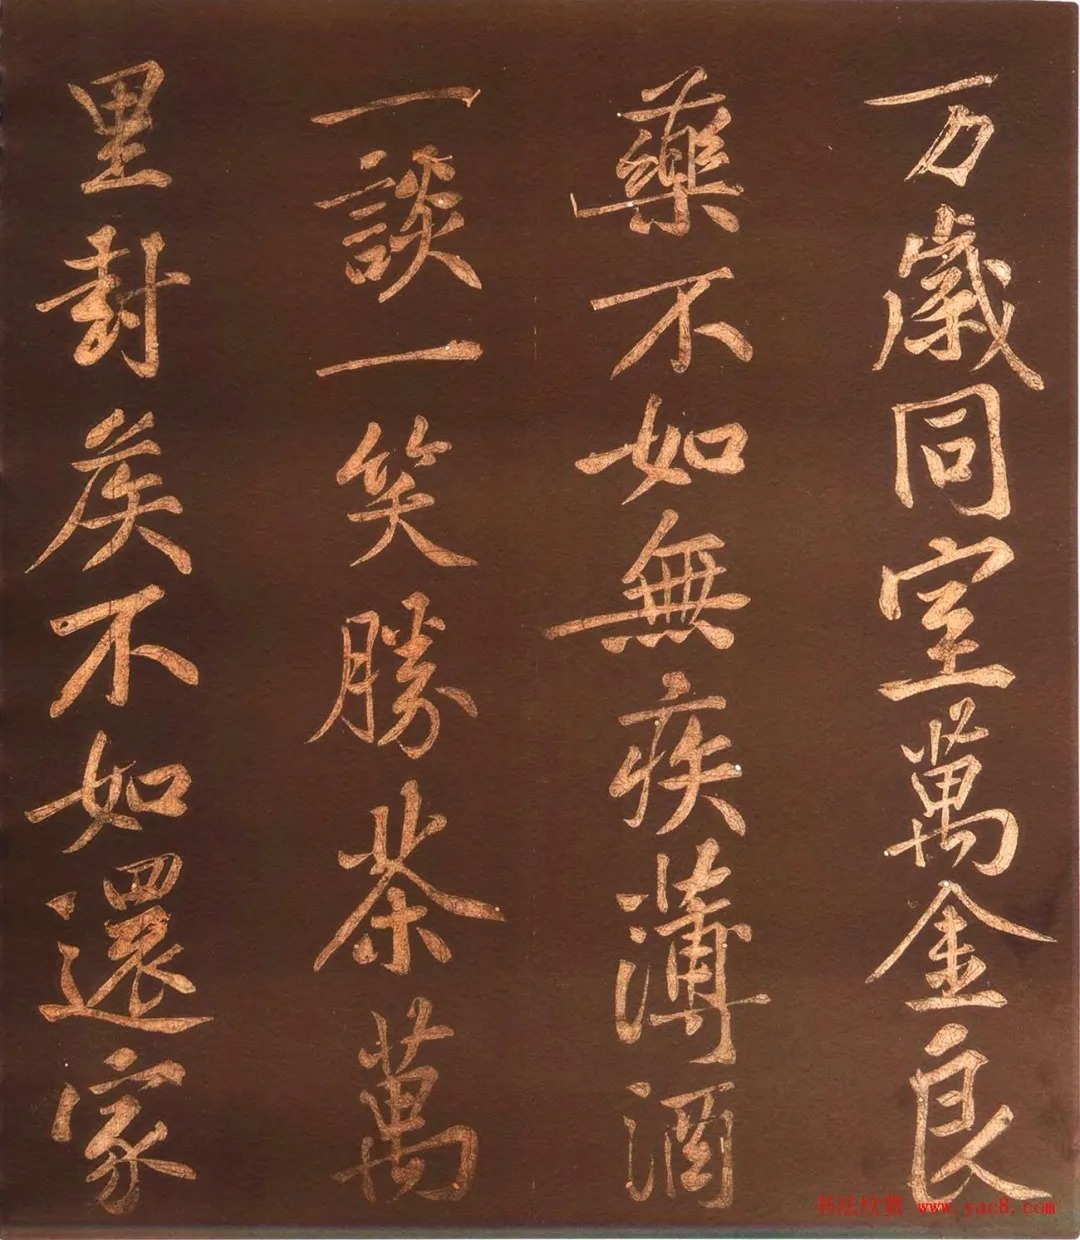 万歲同室萬金良
藥不如無疾薄酒
一談一笑勝茶萬
里封矦不如還家
书法欣赏 www.yac8.com